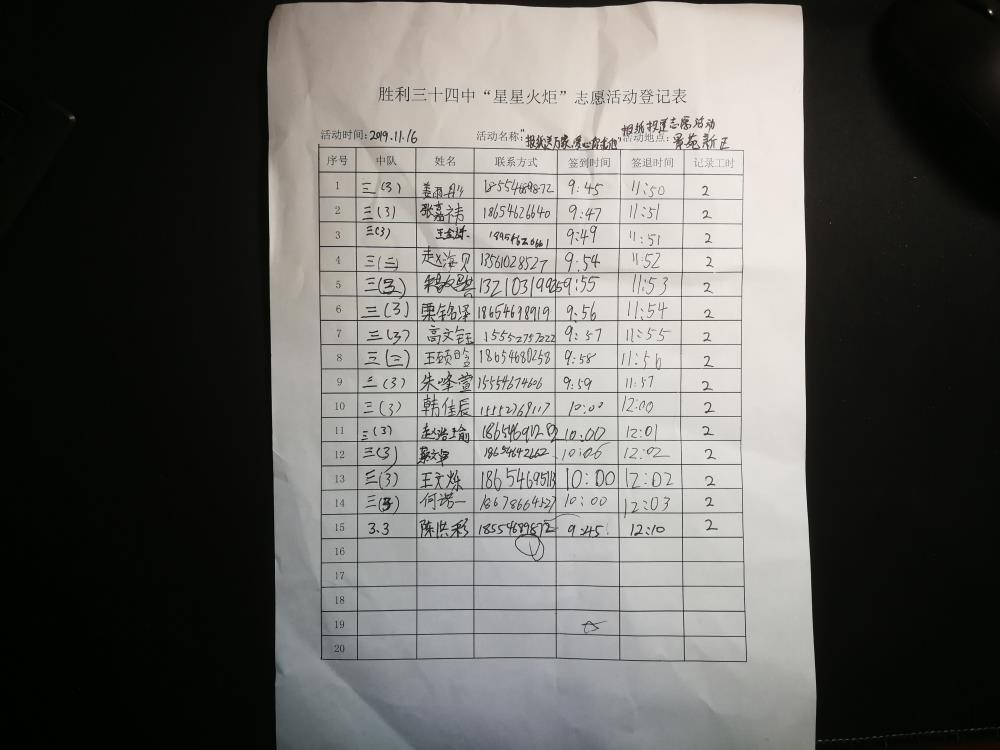 胜利三十四中“星星火炬”志愿活动登记表
报纸投递志愿活动
活动时间:2019.11.16 活动名称: 活动地点: 景苑新区
序号 中队 姓名 联系方式 签到时间 签退时间 记录工时
1 三(3) 18554689872 9:45 11:50 2
2 三(3) 张嘉祎 18654626640 9:47 11:51 2
3 三(3) 9:49 11:51 2
4 三(三) 赵海贝 13561028527 9:54 11:52 2
5 三(3) 9:55 11:53 2
6 三(3) 栗铭泽 18654698919 9:56 11:54 2
7 三(3) 高文钰 15552757222 9:57 11:55 2
8 三(三) 王颐晗 18654680258 9:58 11:56 2
9 三(3) 朱峰萱 15554674606 9:59 11:57 2
10 三(3) 韩佳辰 15552769117 10:00 12:00 2
11 三(3) 10:00 12:01 2
12 三(3) 18654642662 10:06 12:02 2
13 三(3) 王文烁 10:00 12:02 2
14 三(3) 何诺一 10:00 12:03 2
15 3.3 陈洪彩 18554689872 9:45 12:10 2
16
17
18
19
20